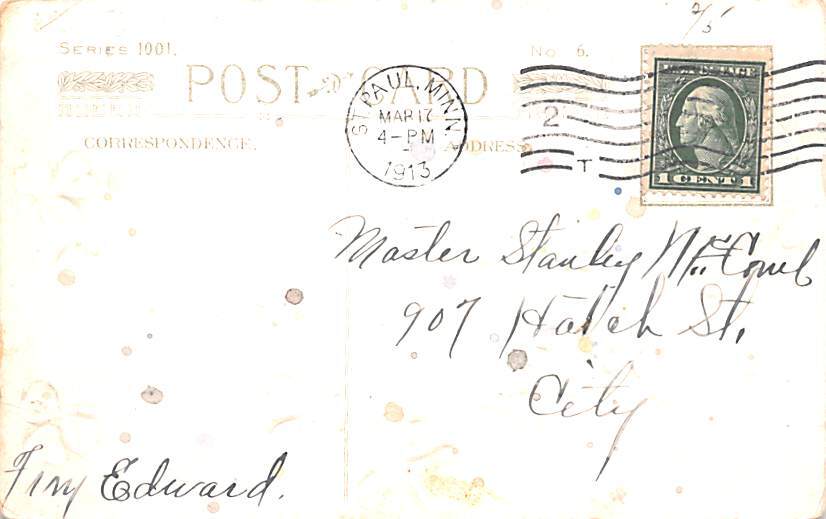 2/5
SERIES 1001.
No. 6.
POST CARD
CORRESPONDENCE.
ADDRESS
ST. PAUL, MINN
MAR 17
4-PM
1913
2
T
U.S. POSTAGE
1 CENT 1
Master Stanley McComb
907 Hatch St.
City
From Edward.